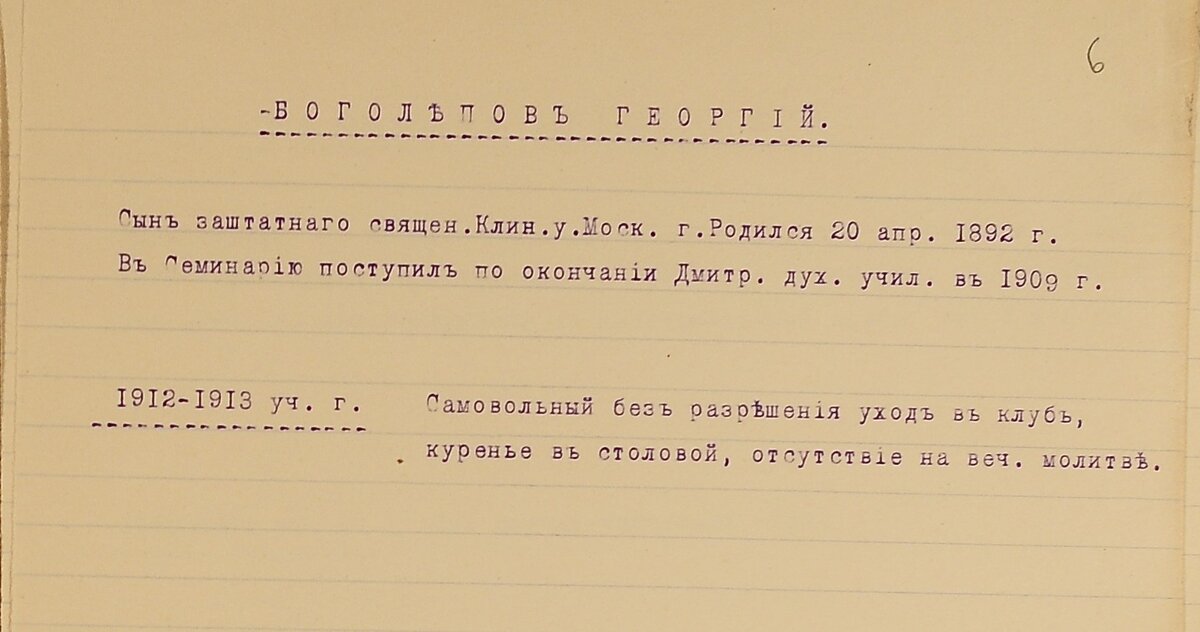 6
-БОГОЛѢПОВЪ ГЕОРГІЙ.
Сынъ заштатнаго священ.Клин.у.Моск. г.Родился 20 апр. 1892 г.
Въ Семинарію поступилъ по окончаніи Дмитр. дух. учил. въ 1909 г.
1912-1913 уч. г. Самовольный безъ разрѣшенія уходъ въ клубъ,
куренье въ столовой, отсутствіе на веч. молитвѣ.